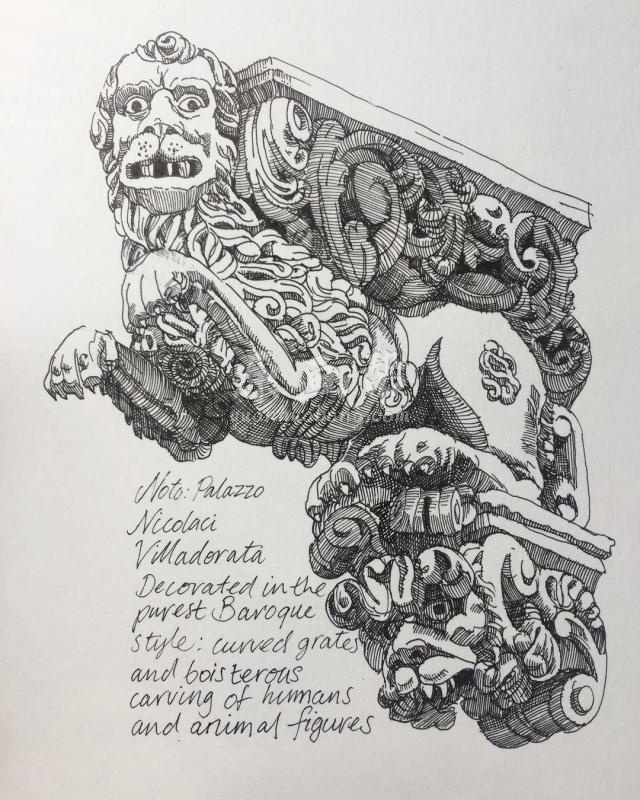 Noto: Palazzo
Nicolaci
Villadorata
Decorated in the
purest Baroque
style: curved grates
and boisterous
carving of humans
and animal figures